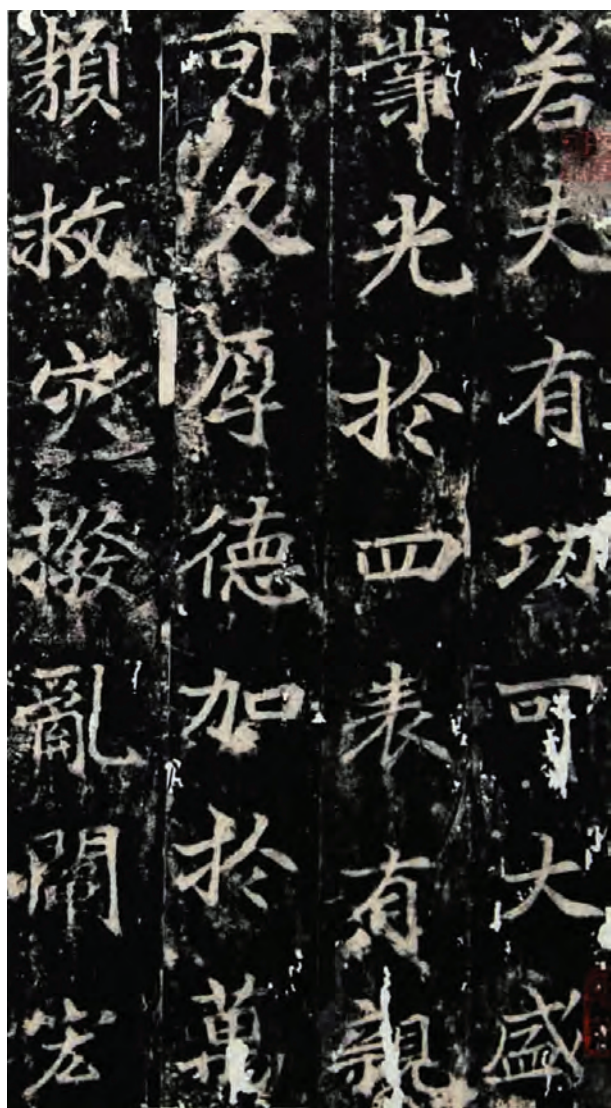 若夫有功可大盛
業光於四表有親
可久厚德加於萬
類救灾撥亂開宏